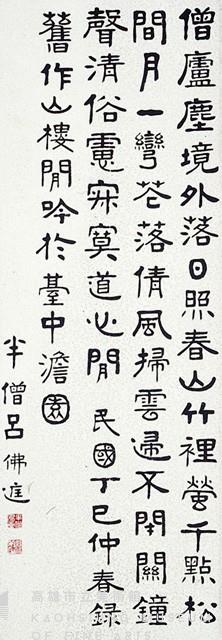 僧廬塵境外落日照春山竹裡螢千點松
間月一彎花落倩風掃雲歸不閉關鐘
聲清俗慮寂寞道心閒 民國丁巳仲春錄
舊作山樓閒吟於臺中澹園
半僧呂佛庭
高雄市立美術館
KAOHSIUNG MUSEUM
OF FINE ARTS